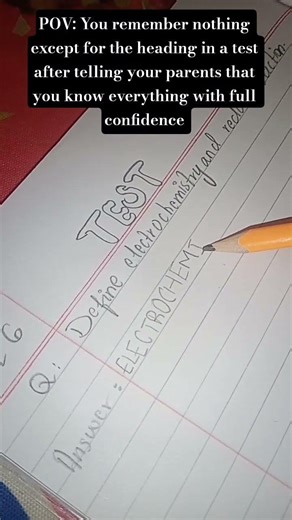 POV: You remember nothing
except for the heading in a test
after telling your parents that
you know everything with full
confidence
TEST
6
Q: Define electrochemistry and
Answer: ELECTROCHEMI